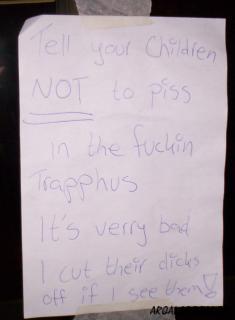 Tell your Children
NOT to piss
in the fuckin
Trapphus
It's verry bad
I cut their dicks
off if I see them!